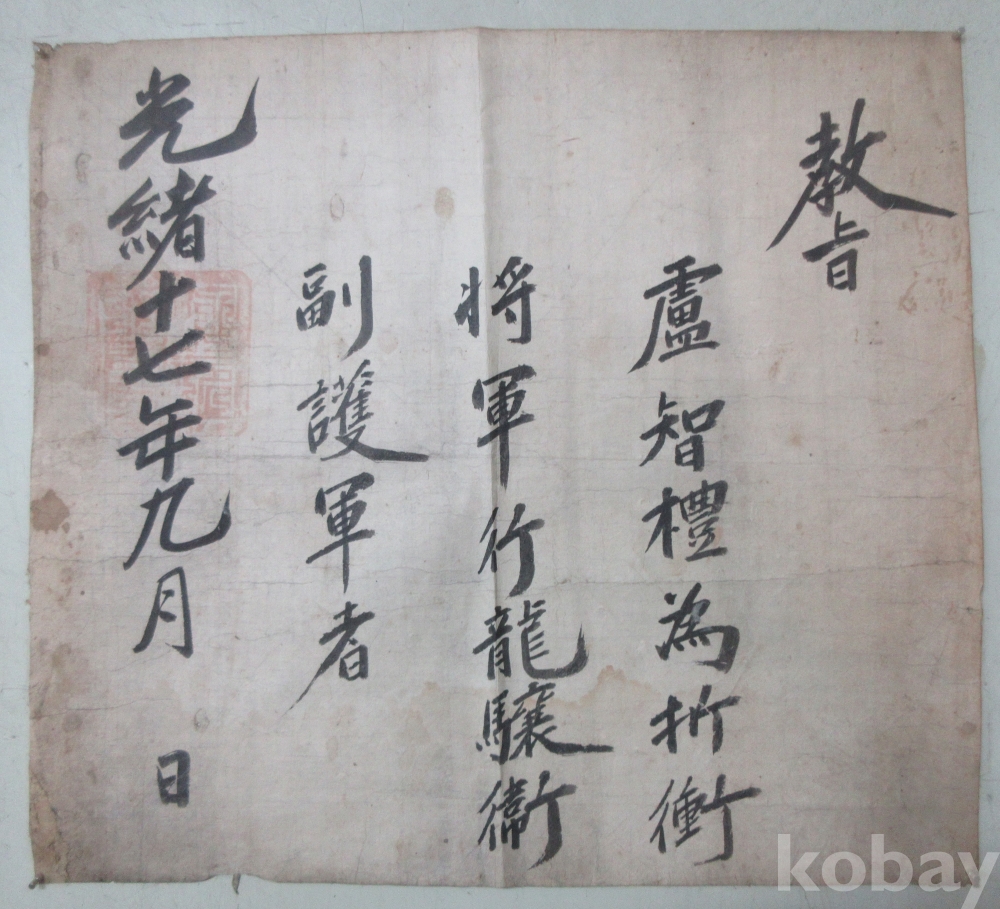 敎旨
盧智禮為折衝
将軍行龍驤衛
副護軍者
光緒十七年九月 日
kobay